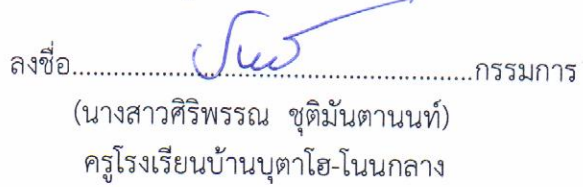 ลงชื่อ........................................................กรรมการ
(นางสาวศิริพรรณ ชุติมันตานนท์)
ครูโรงเรียนบ้านบุตาโฮ-โนนกลาง